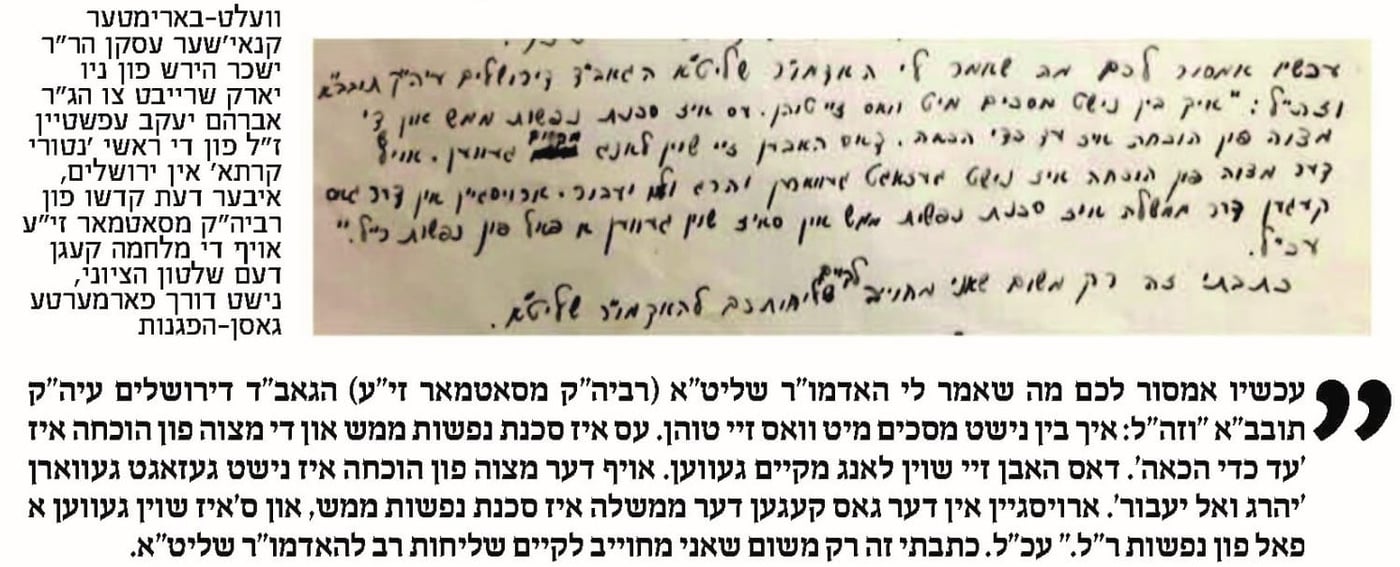 עכשיו אמסור לכם מה שאמר לי האדמו"ר שליט"א הגאב"ד דירושלים עיה"ק תובב"א
וזה"ל: "איך בין נישט מסכים מיט וואס זיי טוהן. עס איז סכנת נפשות ממש און די
מצוה פון הוכחה איז עד כדי הכאה. דאס האבן זיי שוין לאנג מקיים געווען. אויף
דער מצוה פון הוכחה איז נישט געזאגט געווארן יהרג ואל יעבור. ארויסגיין אין דער גאס
קעגן דער ממשלה איז סכנת נפשות ממש און סאיז שוין געווען א פאל פון נפשות ר"ל."
עכ"ל.
כתבתי זה רק משום שאני מחוייב לקיים שליחותכם להאדמו"ר שליט"א.
וועלט-בארימטער
קנאי'שער עסקן הר"ר
ישכר הירש פון ניו
יארק שרייבט צו הג"ר
אברהם יעקב עפשטיין
ז"ל פון די ראשי 'נטורי
קרתא' אין ירושלים,
איבער דעת קדשו פון
רביה"ק מסאטמאר זי"ע
אויף די מלחמה קעגן
דעם שלטון הציוני,
נישט דורך פארמערטע
גאסן-הפגנות
עכשיו אמסור לכם מה שאמר לי האדמו"ר שליט"א (רביה"ק מסאטמאר זי"ע) הגאב"ד דירושלים עיה"ק
תובב"א "וזה"ל: איך בין נישט מסכים מיט וואס זיי טוהן. עס איז סכנת נפשות ממש און די מצוה פון הוכחה איז
'עד כדי הכאה'. דאס האבן זיי שוין לאנג מקיים געווען. אויף דער מצוה פון הוכחה איז נישט געזאגט געווארן
'יהרג ואל יעבור'. ארויסגיין אין דער גאס קעגען דער ממשלה איז סכנת נפשות ממש, און ס'איז שוין געווען א
פאל פון נפשות ר"ל." עכ"ל. כתבתי זה רק משום שאני מחוייב לקיים שליחות רב להאדמו"ר שליט"א.